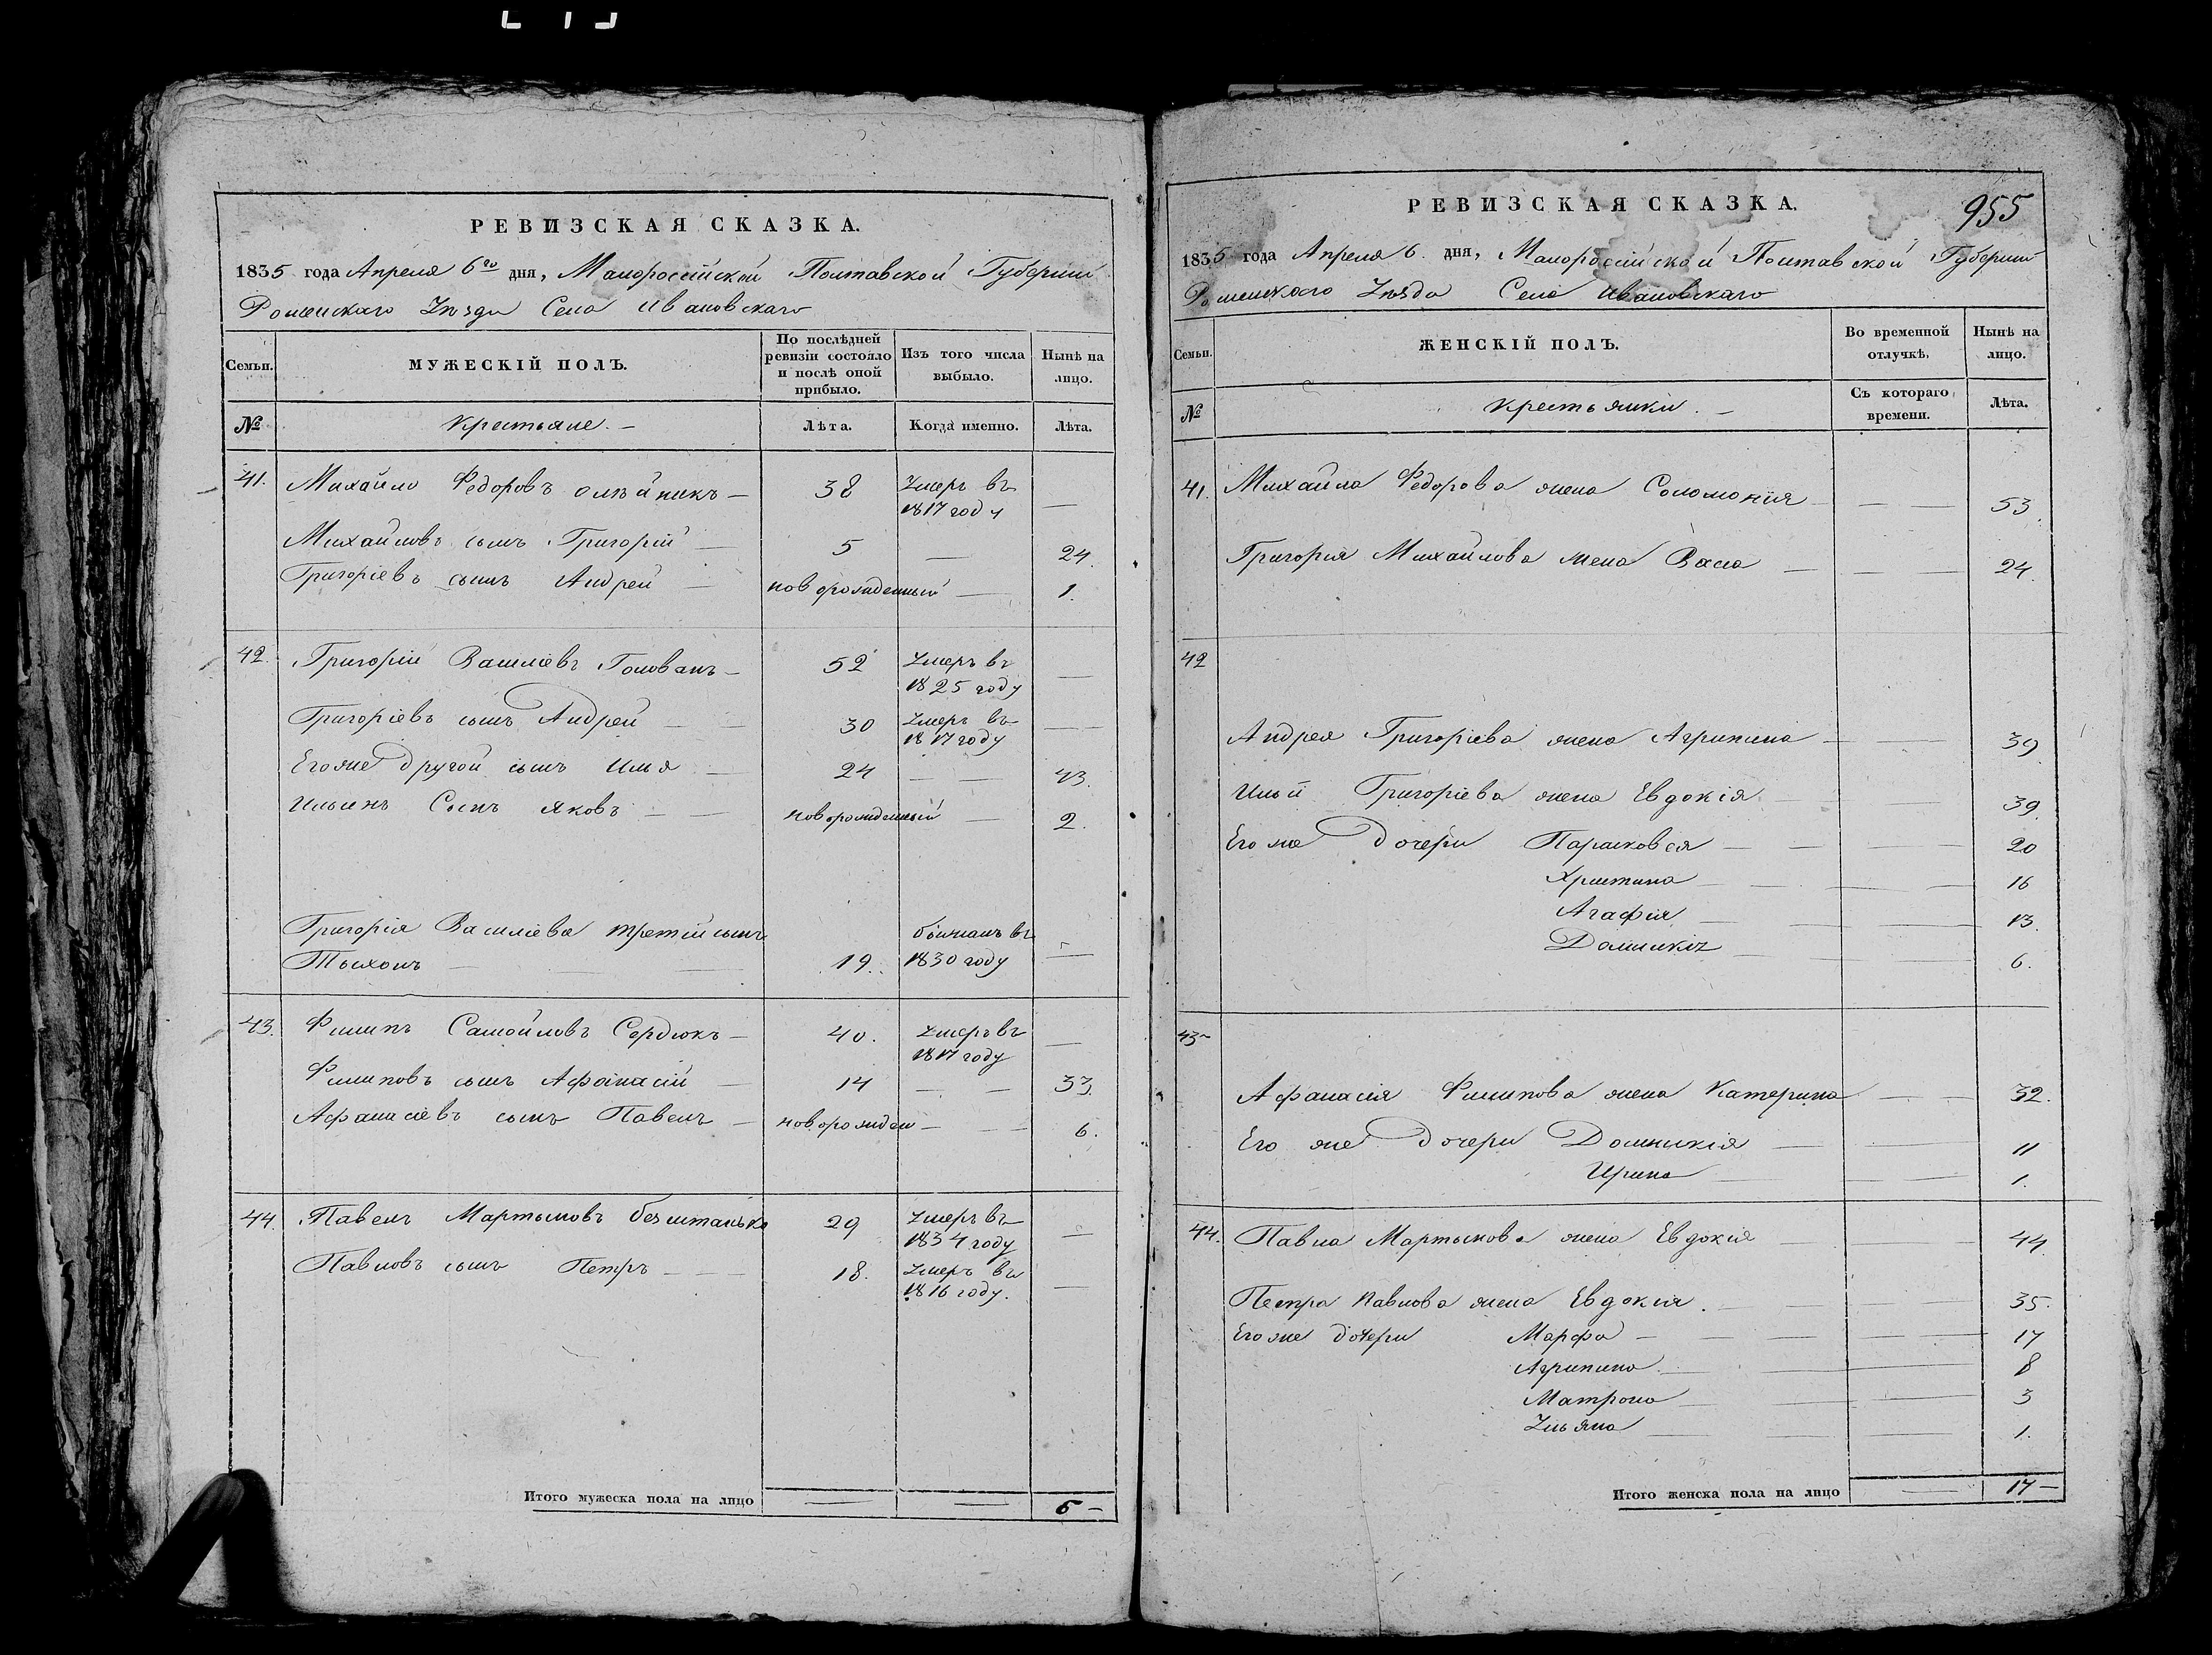 РЕВИЗСКАЯ СКАЗКА.
1835 года Апреля 6го дня, Малороссійской Полтавской Губерніи
Роменскаго Уѣзда Села Ивановскаго
Семьи.
МУЖЕСКІЙ ПОЛЪ.
По послѣдней ревизіи состояло и послѣ оной прибыло.
Изъ того числа выбыло.
Нынѣ на лицо.
№
Крестьяне.
Лѣта.
Когда именно.
Лѣта.
41. Михайло Федоровъ Олѣйникъ — 38 Умеръ въ 1817 году —
Михайловъ сынъ Григорій — 5 — 24.
Григоріевъ сынъ Андрей — новорожденный — 1.
42. Григорій Василіевъ Голованъ — 52 Умеръ въ 1825 году —
Григоріевъ сынъ Андрей — 30 Умеръ въ 1817 году —
Егоже другой сынъ Илья — 24 — — 43.
Ильинъ Сынъ Яковъ — — новорожденный — 2.
Григорія Василіева третій сынъ
Тыхонъ — — 19. бѣжалъ въ 1830 году —
43. Филипъ Самойловъ Сердюкъ — 40. Умеръ въ 1817 году —
Филиповъ сынъ Афанасій — 14 — — 33.
Афанасіевъ сынъ Павелъ — новорожден — — 6.
44. Павелъ Мартыновъ Безштанько 29 Умеръ въ 1834 году —
Павловъ сынъ Петръ — — 18. Умеръ въ 1816 году. —
Итого мужеска пола на лицо — — 6 —
РЕВИЗСКАЯ СКАЗКА.
955
1835 года Апреля 6. дня, Малоросійской Полтавской Губерніи
Роменскаго Уѣзда Села Ивановскаго
Семьи.
ЖЕНСКІЙ ПОЛЪ.
Во временной отлучкѣ.
Нынѣ на лицо.
№
Крестьянки. —
Съ котораго времени.
Лѣта.
41. Михайла Федорова жена Соломонія — — — 53.
Григорія Михайлова жена Васа — — — 24.
42
Андрея Григоріева жена Агрипина — — 39
Ильи Григоріева жена Евдокія — — 39.
Его же дочери Парасковея — — — — 20
Христина — — — — 16
Агафія — — — — 13.
Доминикія — — 6.
43
Афанасія Филипова жена Катерина — — 32.
Его же дочери Домникія — — — 11
Ирина — — — 1.
44. Павла Мартынова жена Евдокія — — — 44
Петра Павлова жена Евдокія. — — — 35.
Егоже дочери Марфа — — — — 17
Агрипина — — — 8
Матрона — — — — 3
Ульяна — — — — 1.
Итого женска пола на лицо — 17 —